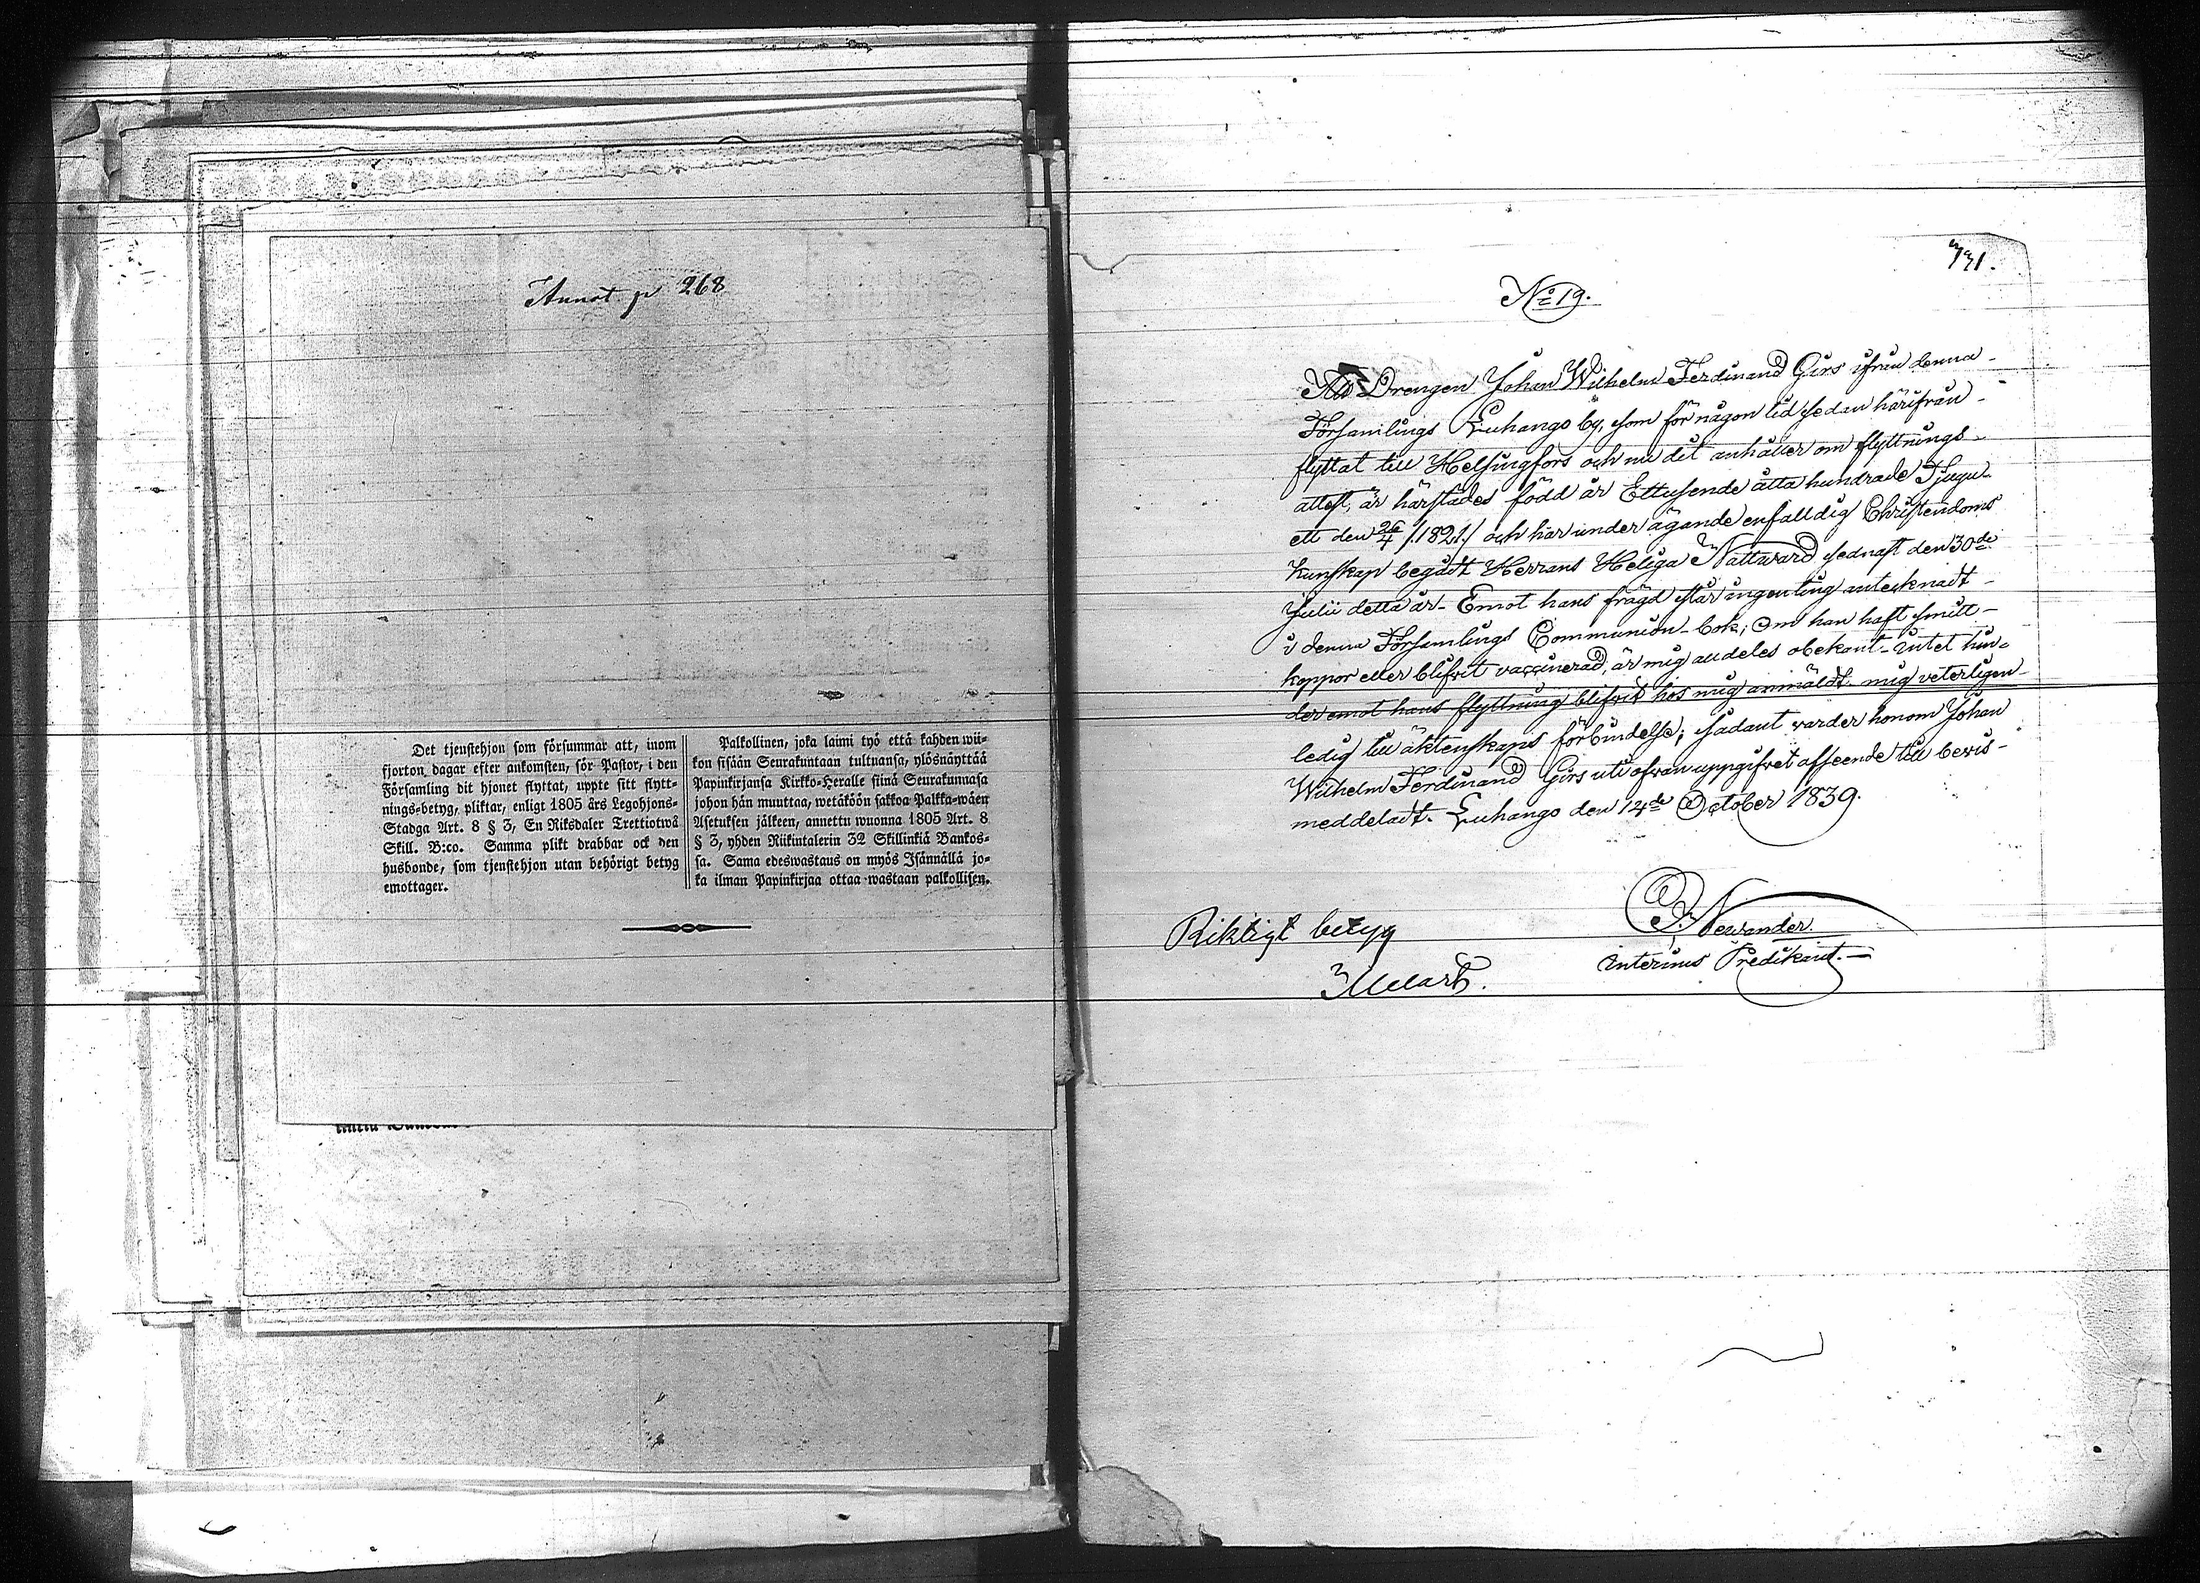 Annot. p 268
Det tjenstehjon som försummar att, inom
fjorton dagar efter ankomsten, för Pastor, i den
Församling dit hjonet flyttat, uppte sitt flytt-
nings-betyg, pliktar, enligt 1805 års Legohjons-
Stadga Art. 8 § 3, En Riksdaler Trettiotwå
Skill. B:co. Samma plikt drabbar ock den
husbonde, som tjenstehjon utan behörigt betyg
emottager.
Palkollinen, joka laimi lyö että kahden wii-
kon sisään Seurakuntaan tultuansa, ylösnäyttää
Papinkirjansa Kirkko-Heralle siinä Seurakunnasa
johon hän muuttaa, wetäköön sakkoa Palkka-wäen
Asetuksen jälkeen, annettu wuonna 1805 Art. 8
§ 3, yhden Riikintalerin 32 Skillinkiä Bankos-
sa. Sama edeswastaus on myös Isännällä jo-
ka ilman Papinkirjaa ottaa wastaan palkollisen.
No 19.
Att Drengen Johan Wilhelm Ferdinand Girs ifrån denna
Församlings Luhango by, som för någon tid sedan härifrån
flyttat till Helsingfors och nu dit anhåller om flyttnings-
attest, är härstädes född år Ettusende åtta hundrade Tjugu-
ett den 26/4 /:1821:/ och har under ägande enfalldig Christendoms
Kunskap begådt Herrans Heliga Nattward sednast den 30de
Julii detta år. Emot hans frägd står ingenting antecknadt
i denna Församlings Communion-bok; Om han haft smitt-
koppor eller blifvit vaccinerad, är mig alldeles obekant. Intet hin-
der emot hans flyttning blifvit hos mig anmäldt. mig veterligen
ledig till äktenskaps förbindelse; sådant varder honom Johan
Wilhelm Ferdinand Girs uti ofvan uppgifvet afseende till bevis
meddeladt. Luhango den 14de October 1839.
Newander.
interims Predikant.
Riktigt betyg